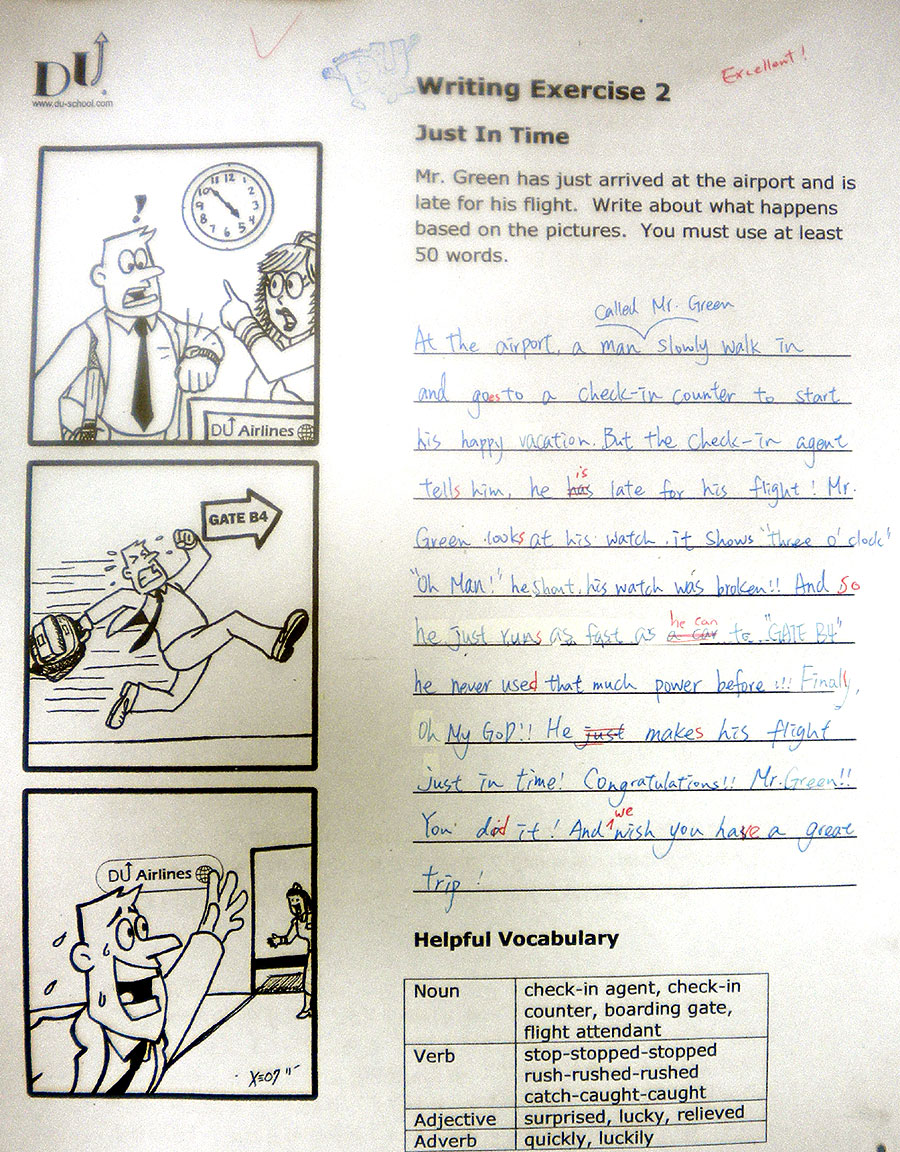 DU
www.du-school.com
Excellent!
Writing Exercise 2
Just In Time
Mr. Green has just arrived at the airport and is
late for his flight. Write about what happens
based on the pictures. You must use at least
50 words.
11 12 1
10 2
9 3
8 4
7 6 5
!
DU Airlines
GATE B4
DU Airlines
XEO7
called Mr. Green
At the airport, a man slowly walk in
and goes to a check-in counter to start
his happy vacation. But the check-in agent
is
tells him, he has late for his flight! Mr.
Green looks at his watch. it shows "three o'clock"
"Oh Man!" he shout, his watch was broken!! And so
he can
he just runs as fast as a car to "GATE B4"
he never used that much power before!!! Finally,
Oh My GoD!! He just makes his flight
just in time! Congratulations!! Mr. Green!!
we
You did it! And wish you have a great
trip!
Helpful Vocabulary
Noun check-in agent, check-in
counter, boarding gate,
flight attendant
Verb stop-stopped-stopped
rush-rushed-rushed
catch-caught-caught
Adjective surprised, lucky, relieved
Adverb quickly, luckily